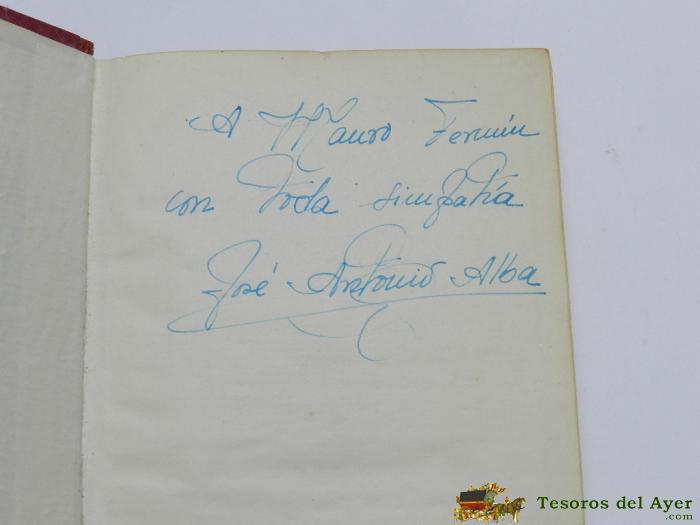 A Mauro Fermín
con Toda simpatía
José Antonio Alba
Tesoros del Ayer
.com